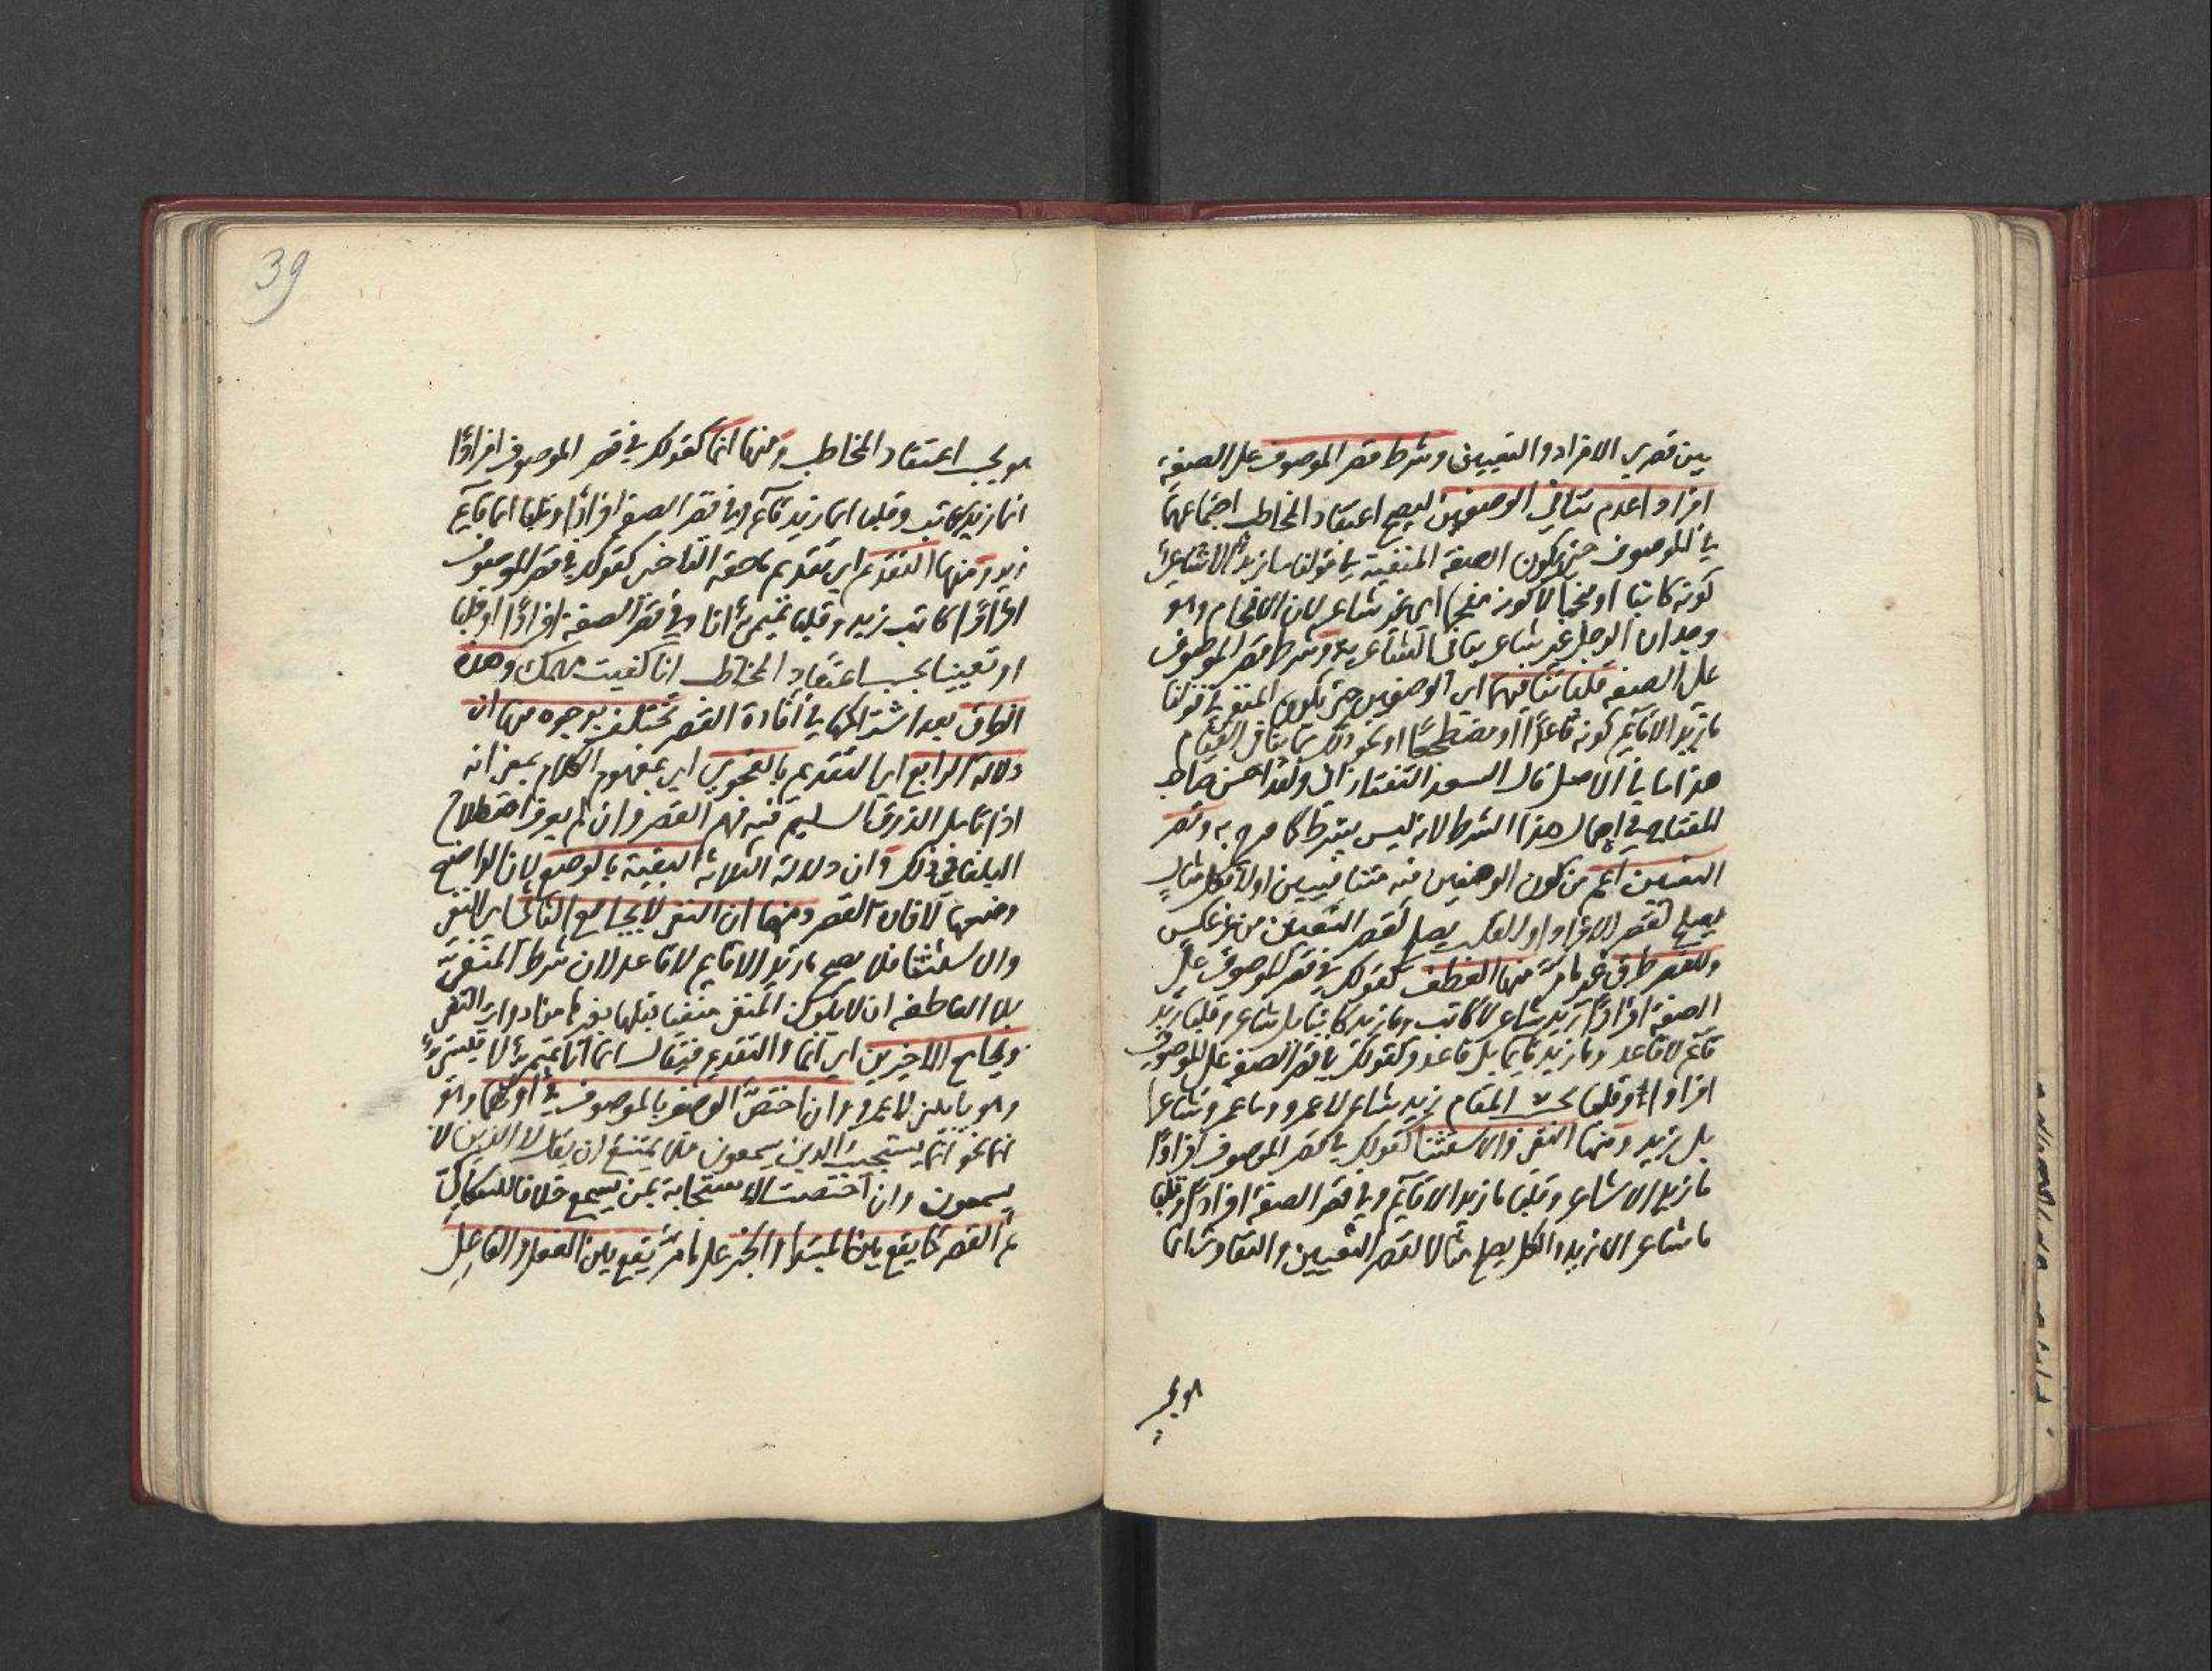 بين قصري الافراد والتعيين وشرط قصر الموصوف على الصفة
افرادا عدم تنافي الوصفين ليصح اعتقاد المخاطب اجتماعهما
في الموصوف حتى يكون الصفة المنفية في قولنا ما زيد الا شاعرا
كونه كاتبا او منجما لا كونه مفحما اي غير شاعر لان الافحام وهو
وجدان الرجل غير شاعر ينافي الشاعرية وشرط قصر الموصوف
على الصفة قلبا تنافيهما اي الوصفين حتى يكون المنفي في قولنا
ما زيد الا قائم كونه قاعدا او مضطجعا او نحو ذلك مما ينافي القيام
هذا ما في الاصل قال السعد التفتازاني ولقد احسن صاحب
المفتاح في اهمال هذا الشرط لانه ليس بشرط كما صرح به وقصر
التعيين اعم من كون الوصفين فيه متنافيين اولا فكل مثال
يصلح لقصر الافراد او القلب يصلح لقصر التعيين من غير عكس
وللقصر طرق غير ما مر منها العطف كقولك في قصر الموصوف على
الصفة افرادا زيد شاعر لا كاتب وما زيد كاتبا بل شاعر وقلبا زيد
قائم لا قاعد وما زيد قائما بل قاعد وكقولك في قصر الصفة على الموصوف
افرادا او قلبا بحسب المقام زيد شاعر لا عمرو وما عمرو شاعرا
بل زيد ومنها النفي والاستثنا كقولك في قصر الموصوف افرادا
ما زيد الا شاعر وقلبا ما زيد الا قائم وفي قصر الصفة افرادا وقلبا
ما شاعر الا زيد والكل يصلح مثالا لقصر التعيين والتفاوت انما
هو بحسب
39
هو بحسب اعتقاد المخاطب ومنها انما كقولك في قصر الموصوف افرادا
انما زيد كاتب وقلبا انما زيد قائم وفي قصر الصفة افرادا وقلبا انما قائم
زيد ومنها التقديم اي تقديم ما حقه التاخير كقولك في قصر الموصوف
افرادا كاتب زيد وقلبا تميمي انا وفي قصر الصفة افرادا او قلبا
او تعيينا بحسب اعتقاد المخاطب انا كفيت مهمك وهذه
الطرق بعد اشتراكها في افادة القصر تختلف بوجوه منها ان
دلالة الرابع اي التقديم بالفحوى اي بمفهوم الكلام بمعنى انه
اذا تامل الذوق السليم فيه فهم القصر وان لم يعرف اصطلاح
البلغا في ذلك وان دلالة الثلاثة البقية بالوضع لان الواضع
وضعها لافادة القصر ومنها ان النفي لا يجامع الثاني اي النفي
والاستثنا فلا يصح ما زيد الا قائم لا قاعد لان شرط المنفي
بلا العاطفة ان لا يكون المنفي منفيا قبلها بغيرها من ادوات النفي
ويجامع الاخيرين اي انما والتقديم فيقال انما انا تميمي لا قيسي
وهو ياتيني لا عمرو وان اختص الوصف بالموصوف في اولهما وهو
انما نحو انما يستجيب الذين يسمعون فلا يمتنع ان يقال لا الذين لا
يسمعون وان اختصت الاستجابة بمن يسمع خلافا للسكاكي
ثم القصر كما يقع بين المبتدا والخبر على ما مر يقع بين الفعل والفاعل